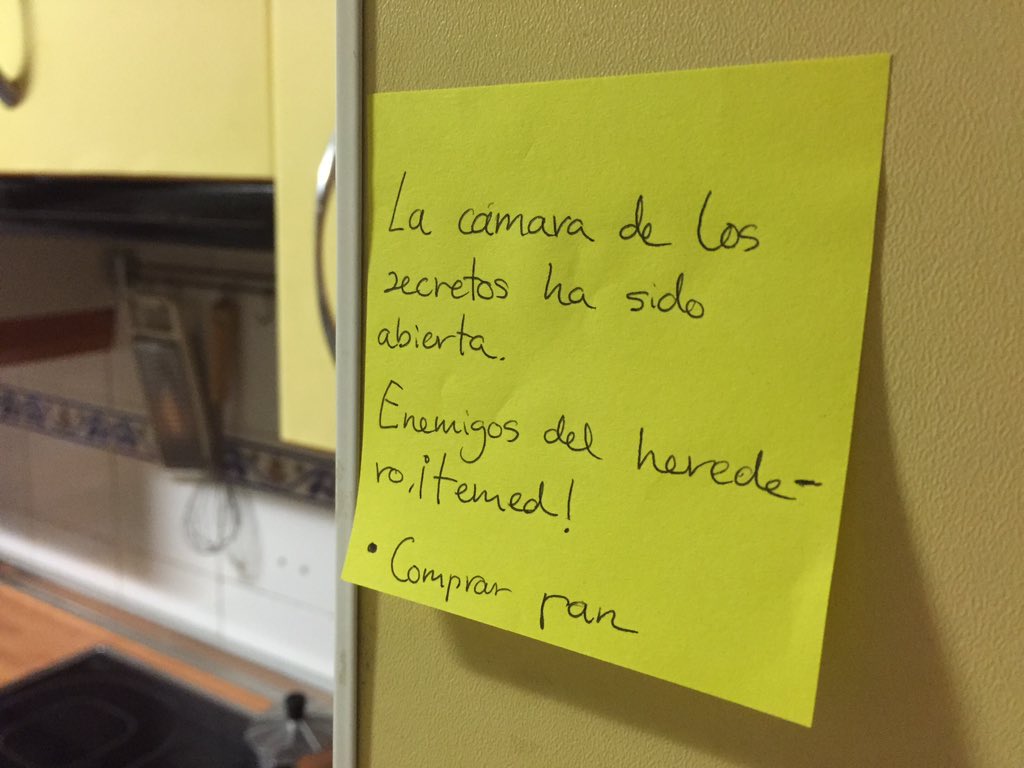 La cámara de los
secretos ha sido
abierta.
Enemigos del herede-
ro, ¡temed!
• Comprar pan